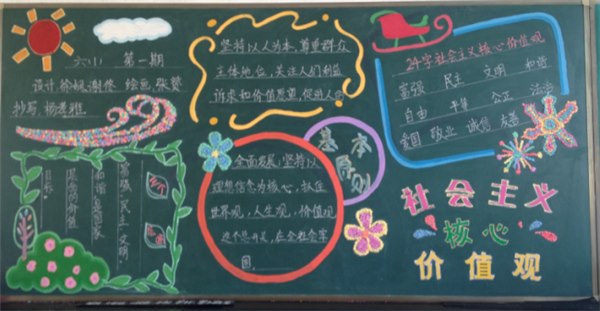 六(1) 第一期
设计 徐娴 谢佟 绘画 张赞
抄写 杨景雅
坚持以人为本,尊重群众
主体地位,关注人们利益
诉求和价值愿望,促进人的
24字社会主义核心价值观
富强 民主 文明 和谐
自由 平等 公正 法治
爱国 敬业 诚信 友善
基本
原则
全面发展;坚持以
理想信念为核心,抓住
世界观,人生观,价值观
这个总开关,在全社会牢
固
富强、民主、文明、
和谐是国家
层面的价值
目标
社会主义
核心
价值观